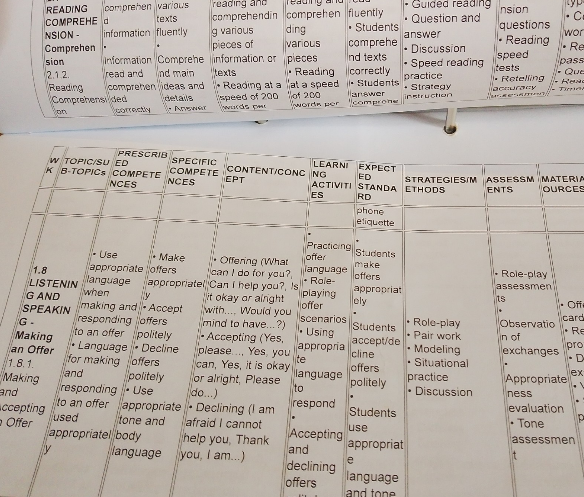 READING
COMPREHE
NSION -
Comprehen
sion
2.1.2.
Reading
Comprehensi
on
comprehen
d
information
•
information
read and
comprehen
ded
correctly
various
texts
fluently
•
Comprehe
nd main
ideas and
details
• Answer
reading and
comprehendin
g various
pieces of
information or
texts
• Reading at a
speed of 200
words per
reading and
comprehen
ding
various
pieces
• Reading
at a speed
of 200
words per
fluently
• Students
comprehe
nd texts
correctly
• Students
answer
• Guided reading
• Question and
answer
• Discussion
• Speed reading
practice
• Strategy
instruction
nsion
questions
• Reading
speed
tests
• Retelling
accuracy
W
K
TOPIC/SU
B-TOPICS
PRESCRIB
ED
COMPETE
NCES
SPECIFIC
COMPETE
NCES
CONTENT/CONC
EPT
LEARNI
NG
ACTIVITI
ES
EXPECT
ED
STANDA
RD
STRATEGIES/M
ETHODS
ASSESSM
ENTS
phone
etiquette
1.8
LISTENIN
G AND
SPEAKIN
G -
Making
an Offer
1.8.1.
Making
and
Accepting
an Offer
• Use
appropriate
language
when
making and
responding
to an offer
• Language
for making
and
responding
to an offer
used
appropriatel
y
• Make
offers
appropriatel
y
• Accept
offers
politely
• Decline
offers
politely
• Use
appropriate
tone and
body
language
• Offering (What
can I do for you?,
Can I help you?, Is
it okay or alright
with..., Would you
mind to have...?)
• Accepting (Yes,
please..., Yes, you
can, Yes, it is okay
or alright, Please
do...)
• Declining (I am
afraid I cannot
help you, Thank
you, I am...)
•
Practicing
offer
language
• Role-
playing
offer
scenarios
• Using
appropria
te
language
to
respond
•
Accepting
and
declining
offers
•
Students
make
offers
appropriat
ely
•
Students
accept/de
cline
offers
politely
•
Students
use
appropriat
e
language
and tone
• Role-play
• Pair work
• Modeling
• Situational
practice
• Discussion
• Role-play
assessmen
ts
•
Observatio
n of
exchanges
•
Appropriate
ness
evaluation
• Tone
assessmen
t